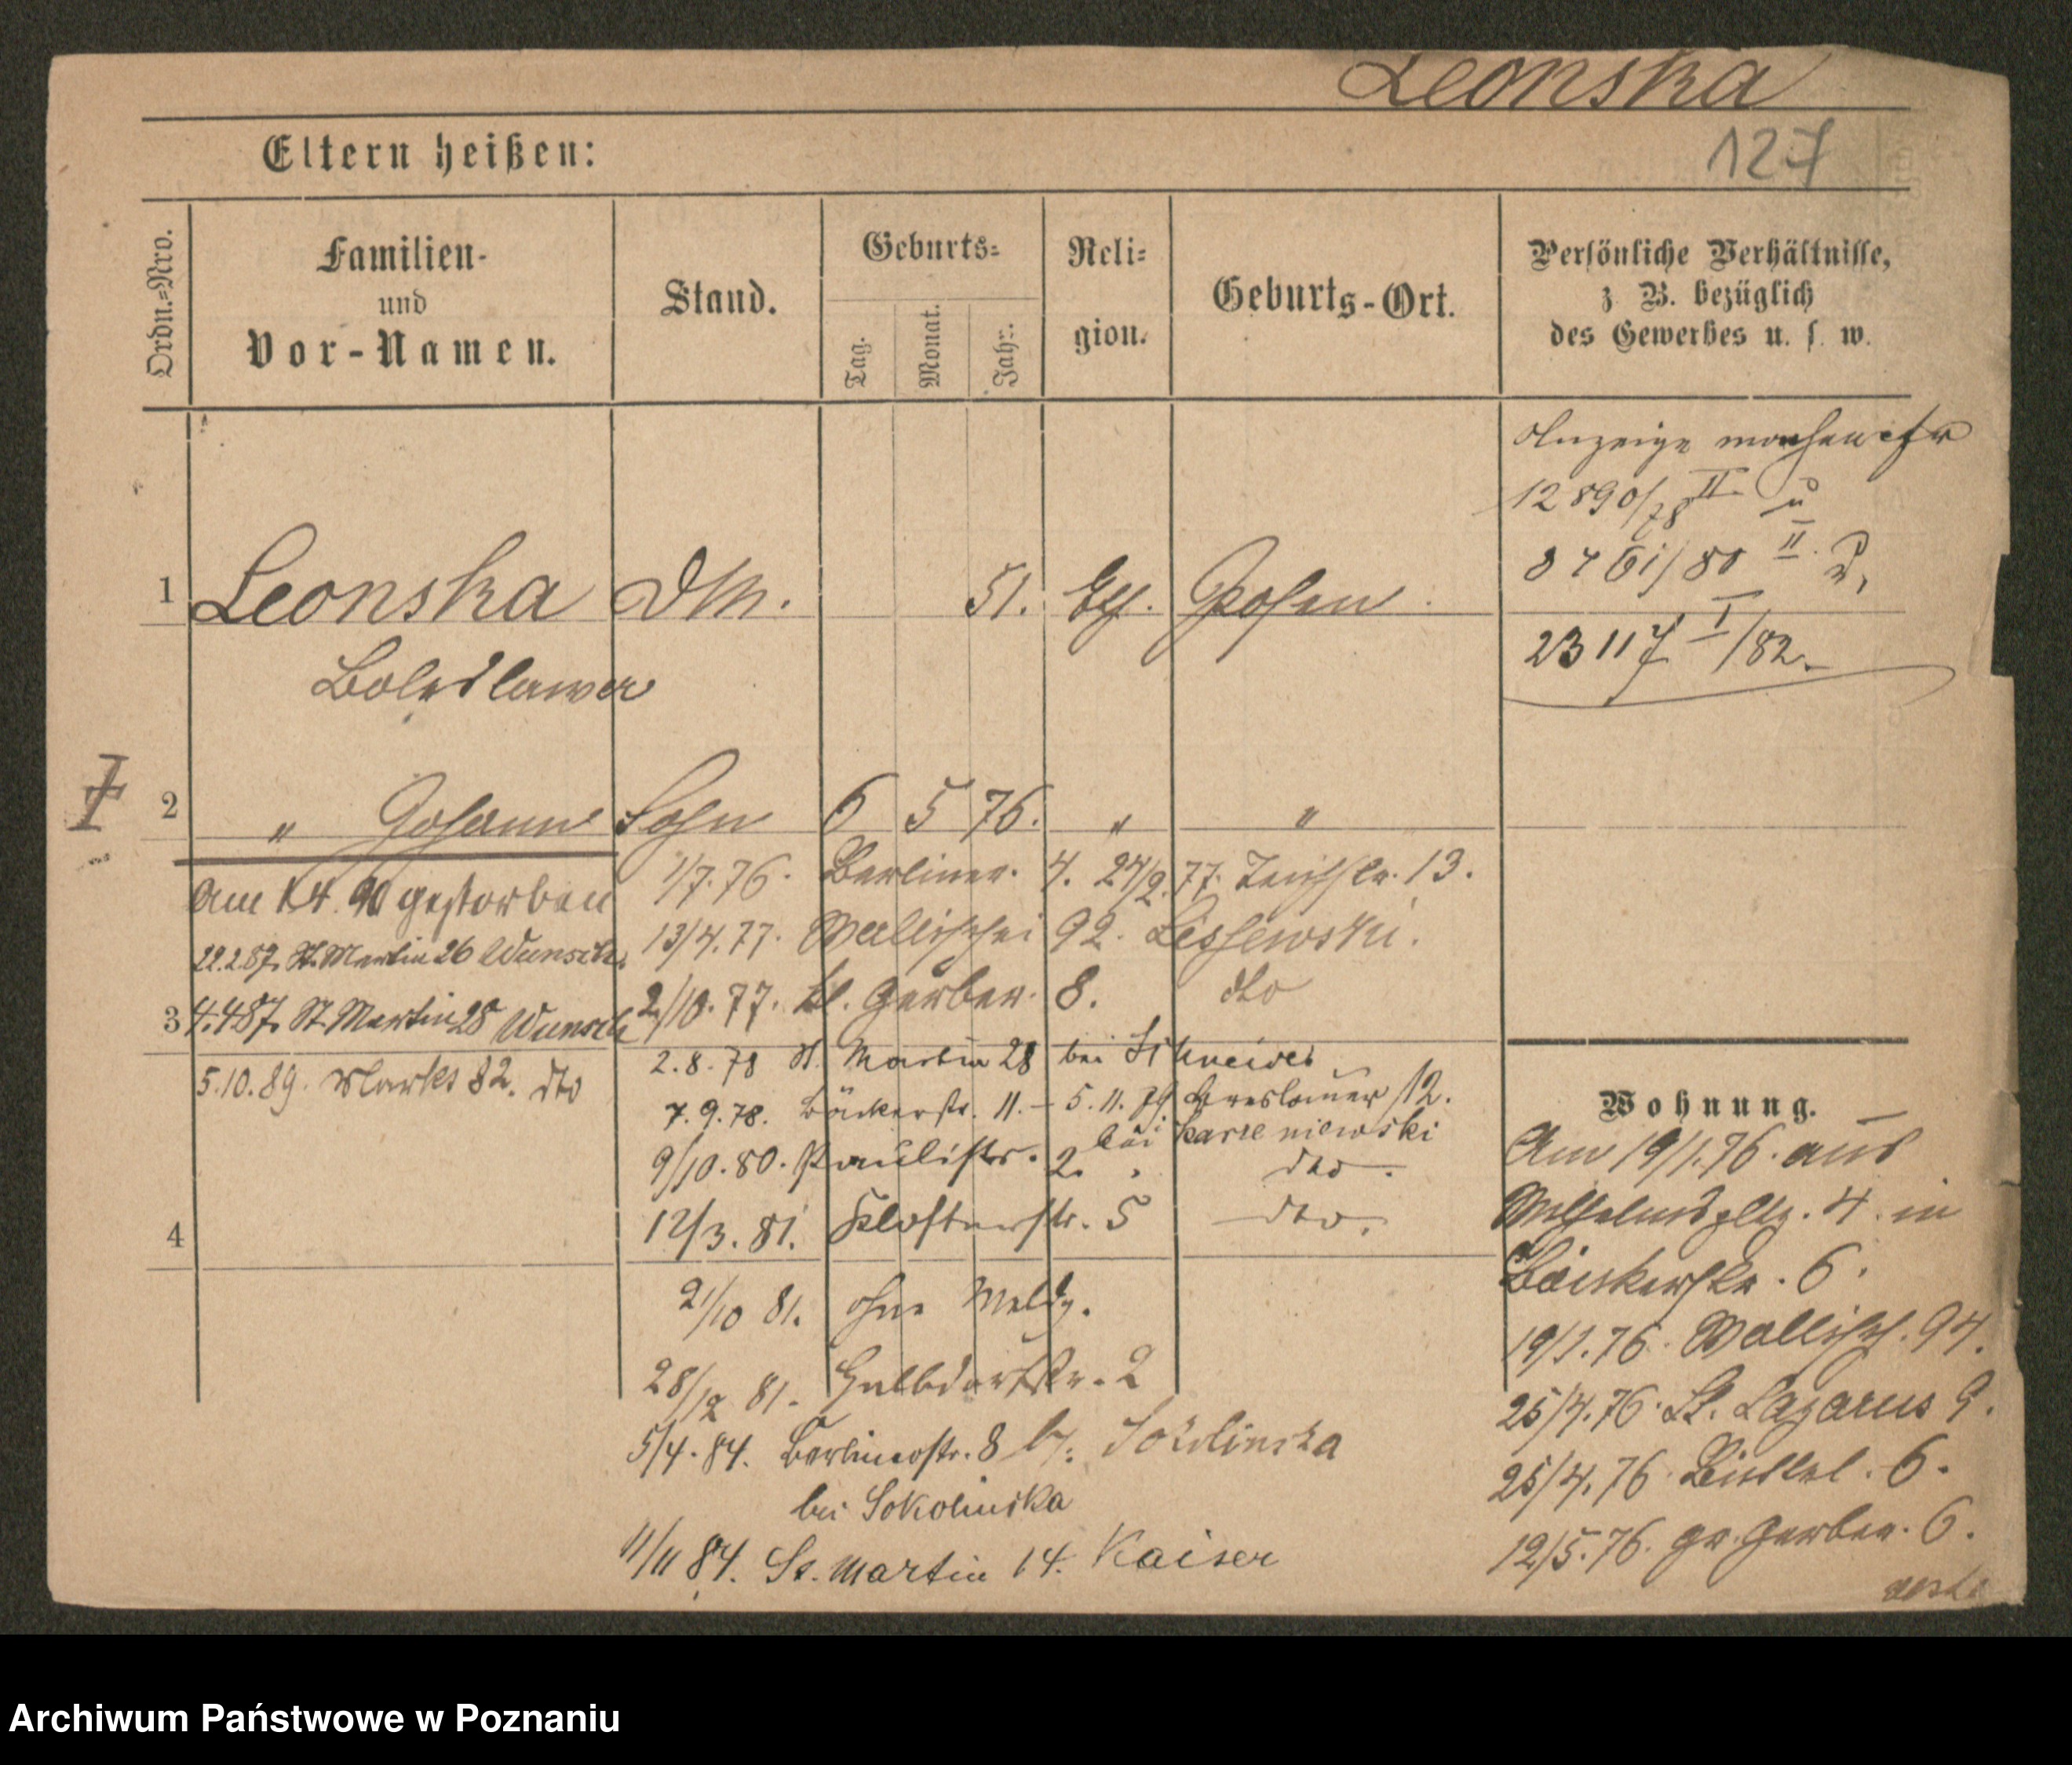 Leonska
127
Eltern heißen:
Ordn.=Nro.
Familien-
und
Vor-Namen.
Stand.
Geburts=
Tag.
Monat.
Jahr.
Reli=
gion.
Geburts-Ort.
Persönliche Verhältnisse,
z. B. bezüglich
des Gewerbes u. s. w.
Anzeige machen cfr
12890/78 II u
8761/80 II.
23117 I/82.
1 Leonska 51. Posen
Boleslawa
2 " Johann Sohn 6 5 76. " "
Am 1.4.90 gestorben
22.2.87. St. Martin 26 Wunsch.
3 4.4.87. St. Martin 28 Wunsch
5.10.89. Markt 82. dto
4
1/7.76. Berliner. 4. 24/2.77. 13.
13/4.77. Wallischei 92. Lissewski.
2/10.77. kl. Gerber. 8. dto
2.8.78 St. Martin 28 bei Schneider
7.9.78. Bäckerstr. 11. — 5.11.79 Breslauer 12.
bei
9/10.80. Paulistr. 2. " dto.
12/3.81. Klosterstr. 5 dto.
21/10 81. ohne Meldg.
28/12 81. Halbdorfstr. 2
5/4.84. Berlinerstr. 8 b. Sokolinska
bei Sokolinska
11/11 84. St. Martin 14. Kaiser
Wohnung.
Am 19/1.76. aus
Wilhelmsplatz. 4. in
Bäckerstr. 6.
19/1.76. Wallisch. 94.
25/4.76. St. Lazarus 9.
25/4.76. 6.
12/5.76. gr. Gerber. 6.
Archiwum Państwowe w Poznaniu